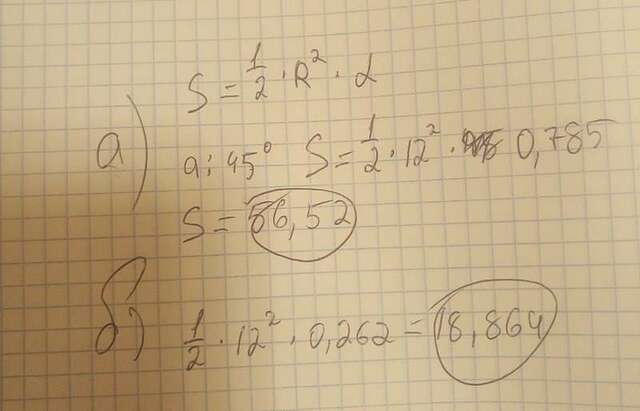 S = 1/2 · R² · α
а) a: 45° S = 1/2 · 12² · 0,785
S = 56,52
б) 1/2 · 12² · 0,262 = 18,864